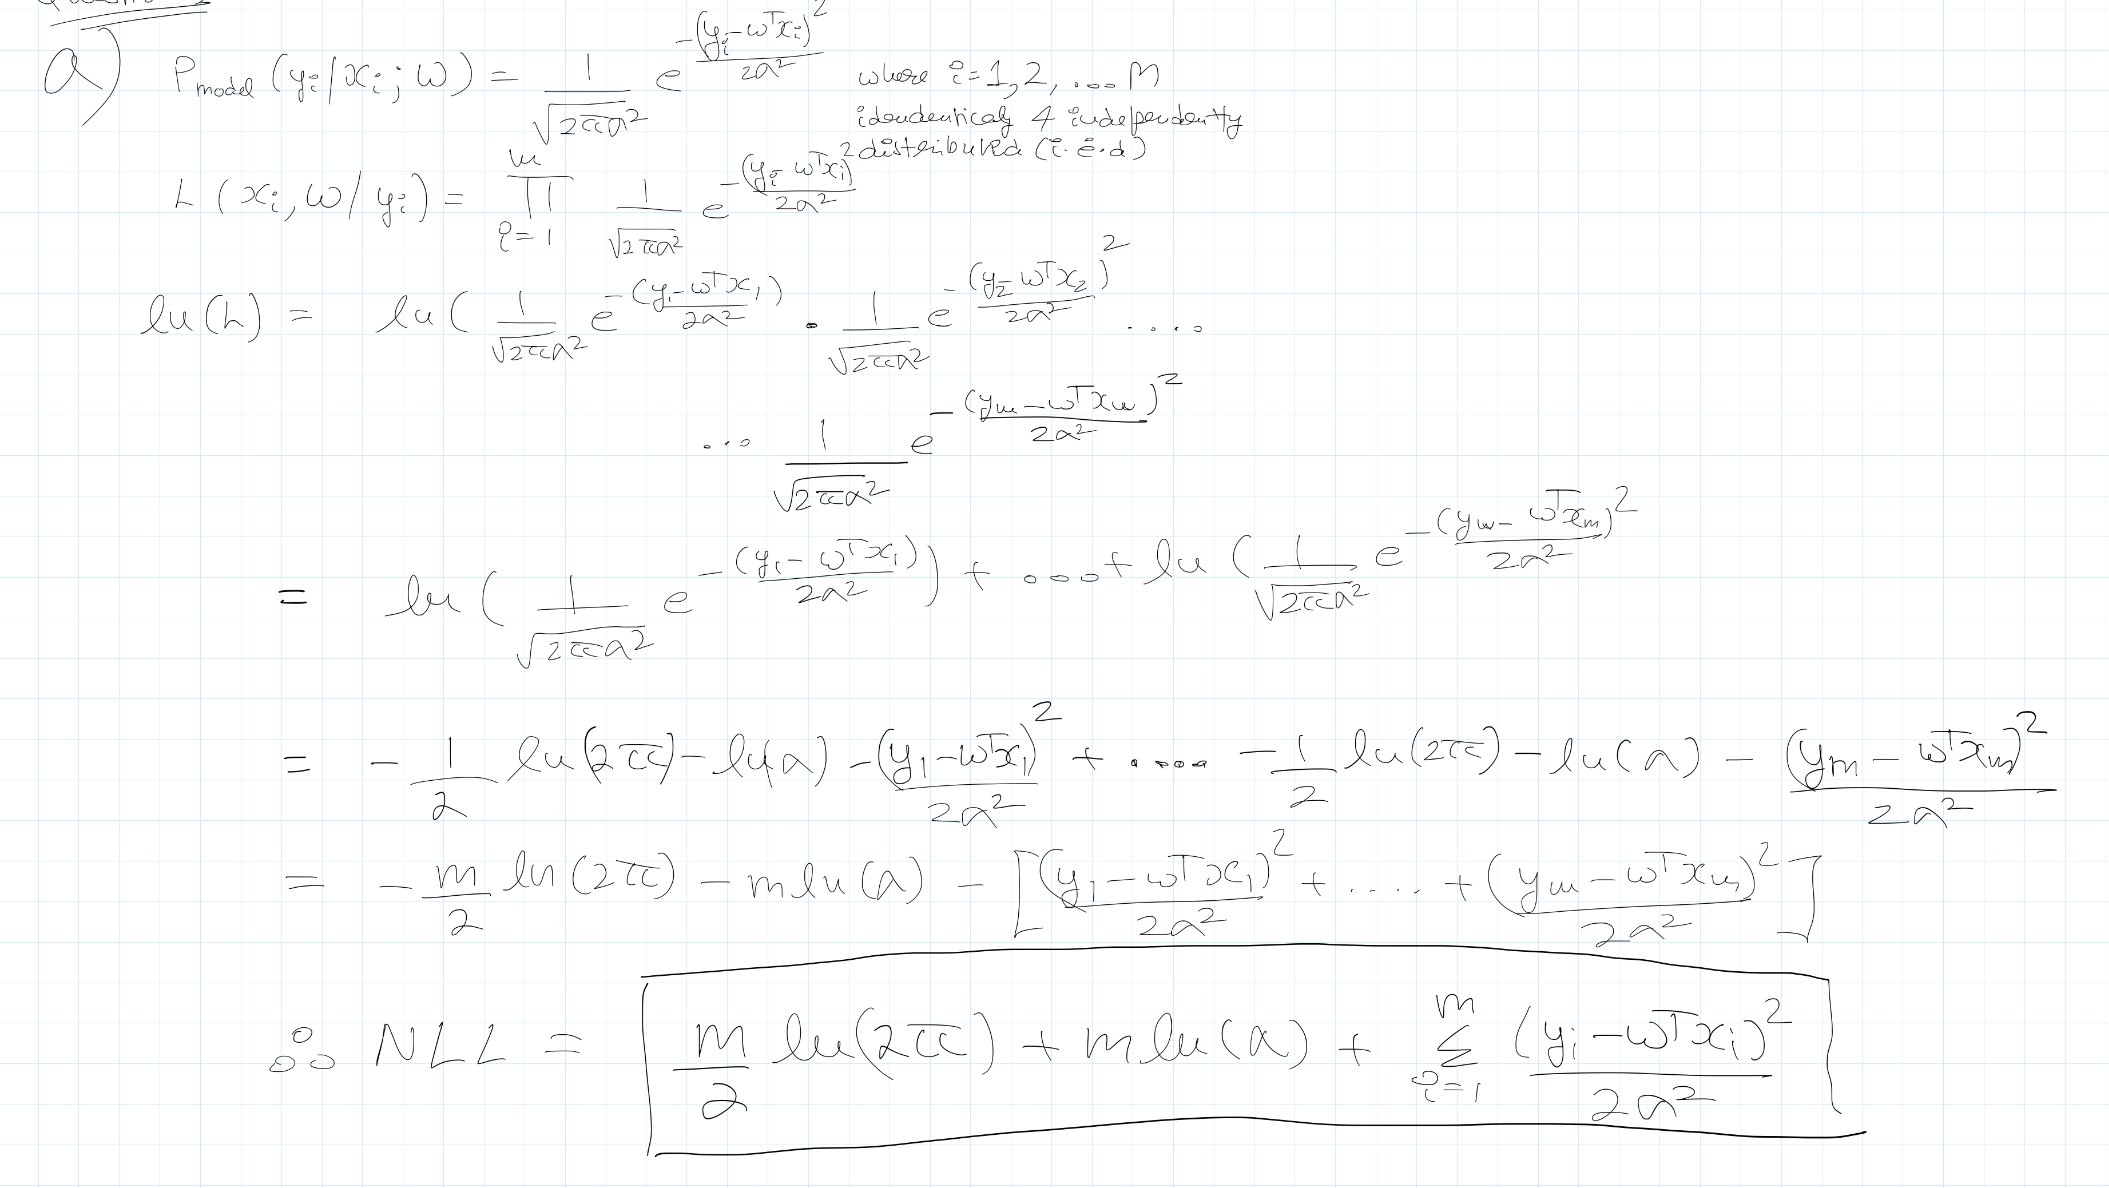 a) P_model (y_i/x_i; ω) = 1/√(2πa²) e^(-(y_i-ω^T x_i)²/2a²) where i=1,2,....M
idendenticaly & independentty
distributed (i.i.d)
L (x_i, ω/y_i) = ∏_{i=1}^{m} 1/√(2πa²) e^(-(y_i-ω^T x_i)²/2a²)
ln(L) = ln( 1/√(2πa²) e^(-(y_1-ω^T x_1)/2a²) · 1/√(2πa²) e^(-(y_2-ω^T x_2)²/2a²) ....
... 1/√(2πa²) e^(-(y_m-ω^T x_m)²/2a²)
= ln( 1/√(2πa²) e^(-(y_1-ω^T x_1)/2a²) ) + ....+ ln( 1/√(2πa²) e^(-(y_m-ω^T x_m)²/2a²)
= -1/2 ln(2π) - ln(a) - (y_1-ω^T x_1)²/2a² + ..... -1/2 ln(2π) - ln(a) - (y_m-ω^T x_m)²/2a²
= -m/2 ln(2π) - m ln(a) - [ (y_1-ω^T x_1)²/2a² + ..... + (y_m-ω^T x_m)²/2a² ]
∴ NLL = m/2 ln(2π) + m ln(a) + Σ_{i=1}^{m} (y_i-ω^T x_i)²/2a²